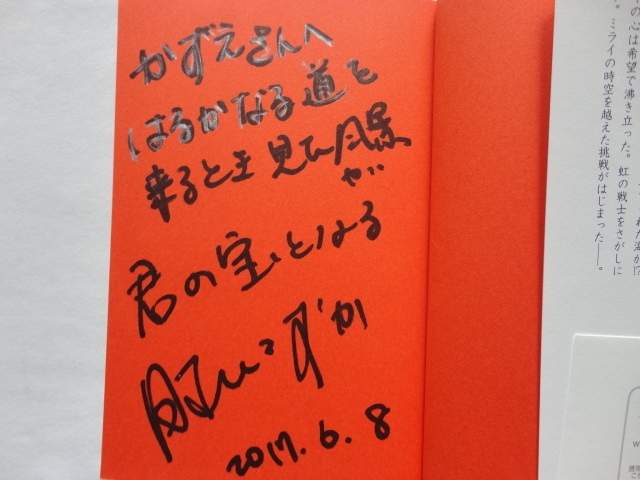 かずえさんへ
はるかなる道を
来るとき見た風景
が
君の宝となる
2017.6.8
の心は希望で沸き立った。虹の戦士をさがしに
。ミライの時空を越えた挑戦がはじまった――。